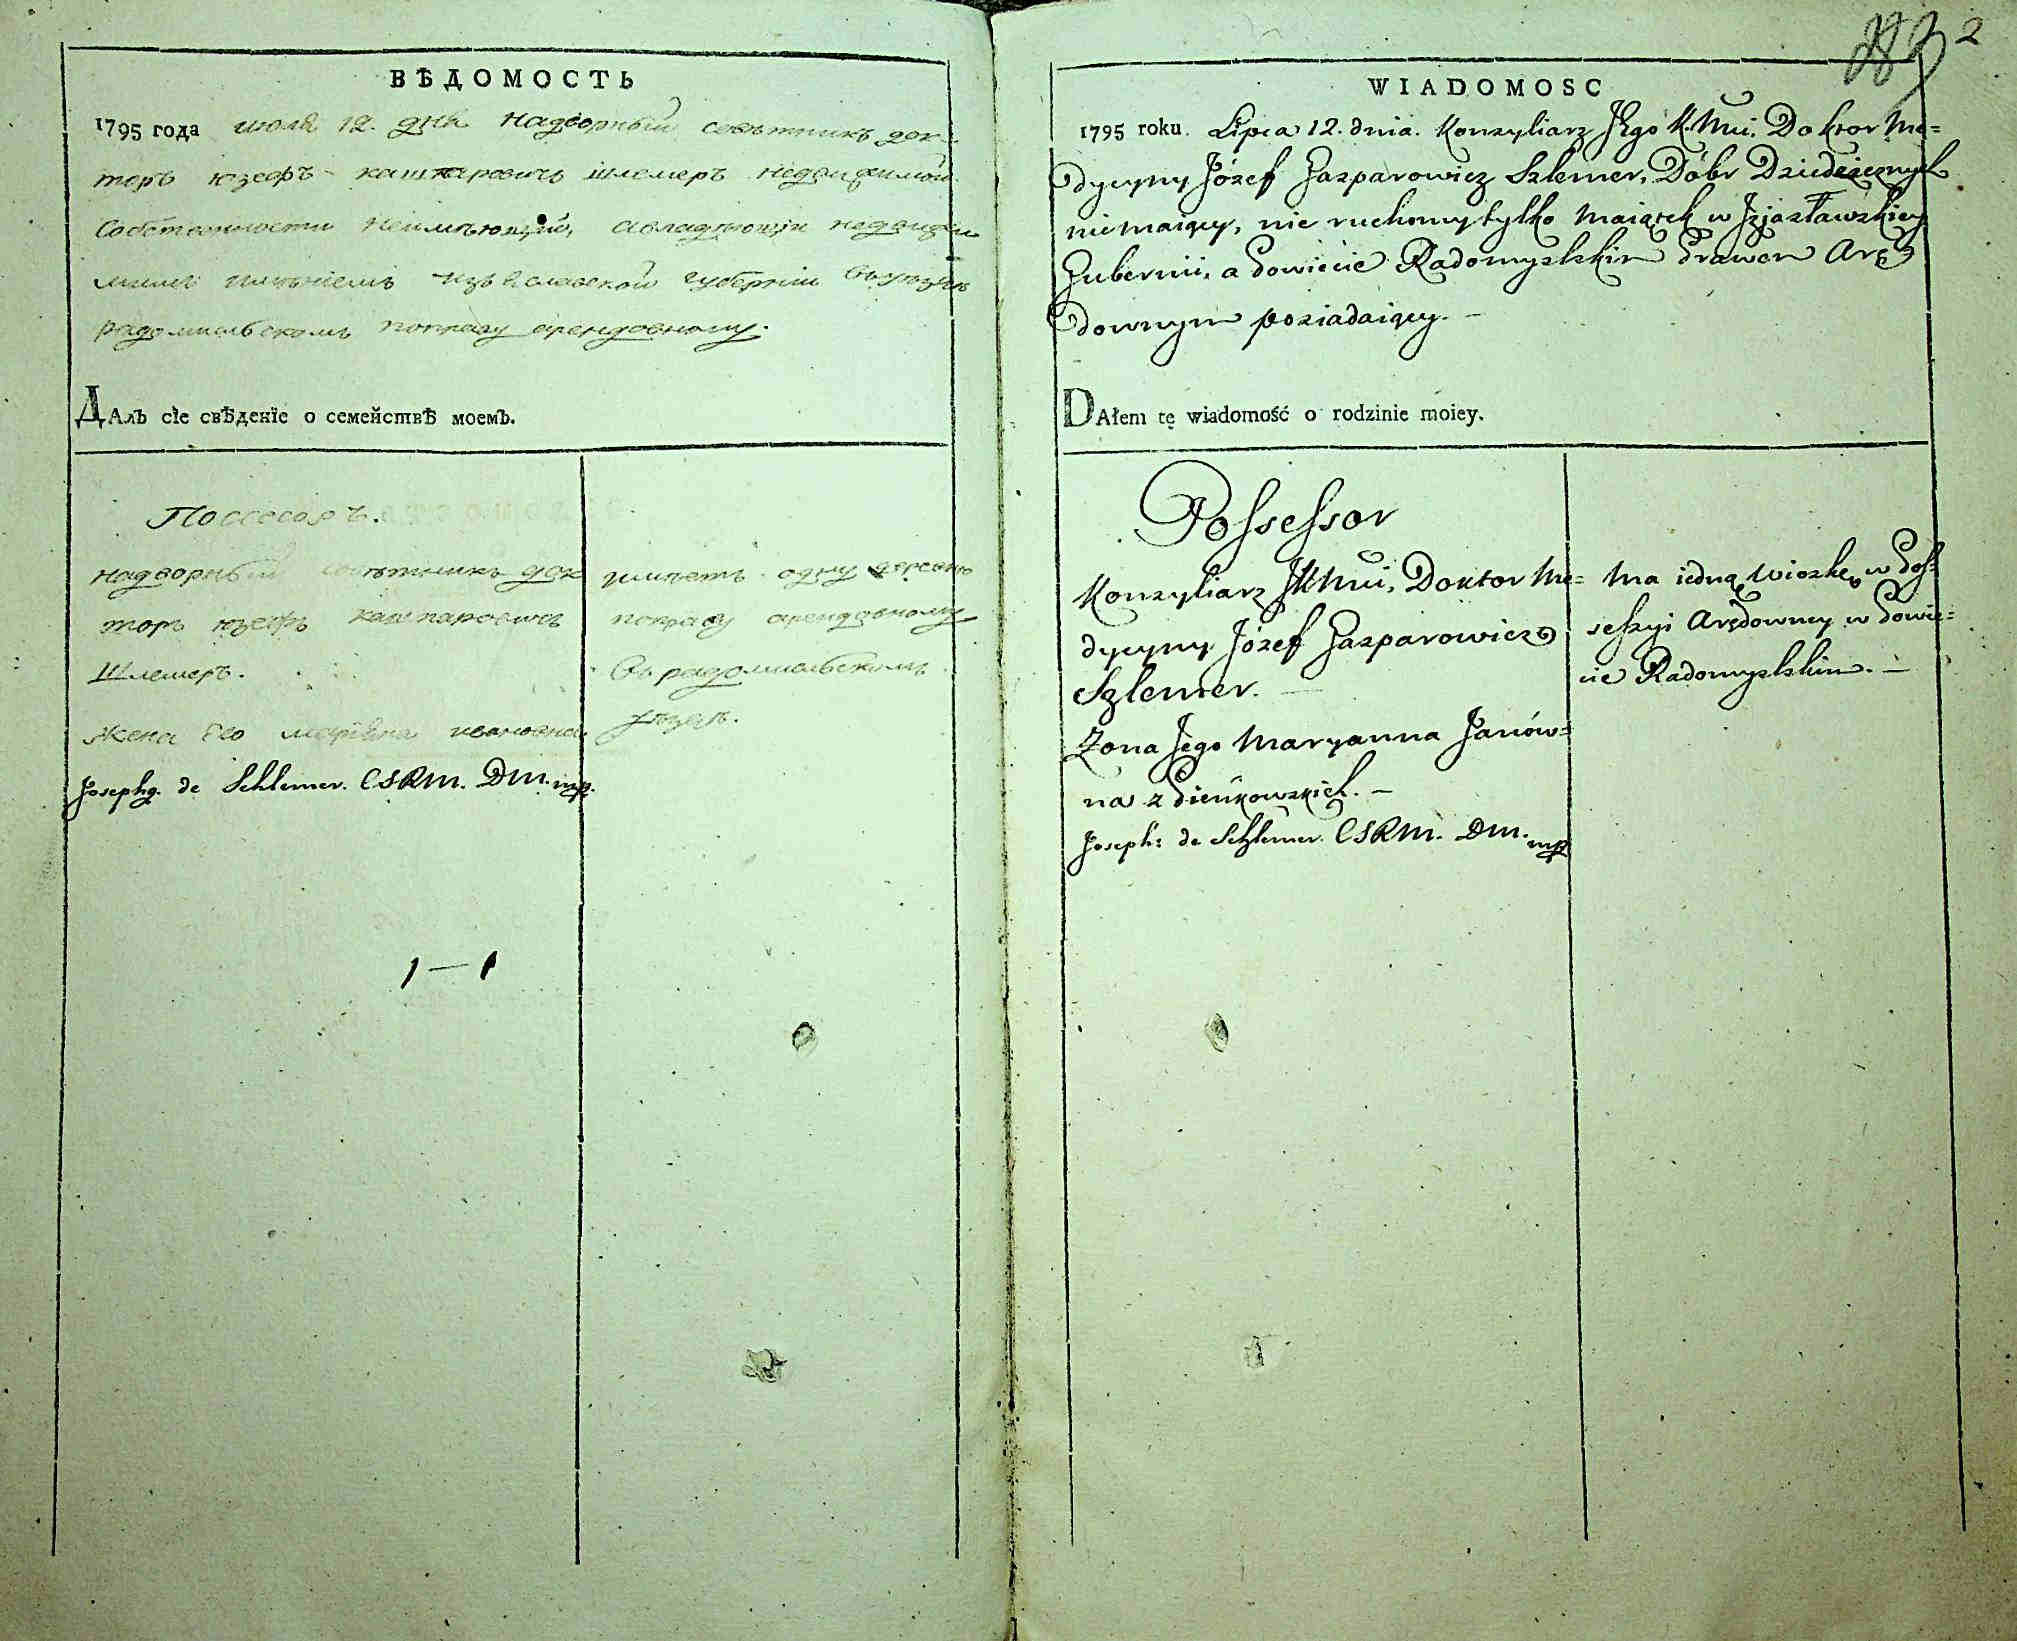 ВѢДОМОСТЬ
1795 года июля 12. дня надворный советникъ док-
торъ юзефъ кашпаровичъ шлемеръ недвижимой
собственности неимѣющiй, авладѣющiй недвижи
мымъ имѣнiемъ изъяславской губернiи въуѣздѣ
радомысльскомъ поправу арендовному.
ДАлъ сїе свѣденїе о семействѣ моемъ.
Поссесоръ.
надворный советникъ док
торъ юзефъ кашпаровичъ
Шлемеръ.
жена его марiяна ивановна
Josephq. de Schlemer. CSRM. DM. mp.
1 — 1
имѣетъ одну деревню
поправу арендовному
въ радомысльскомъ
уѣзде.
282 2
WIADOMOSC
1795 roku. Lipca 12. dnia. Konsyliarz JEgo K. Mci. Doktor Me=
dycyny Józef Gasparowicz Szlemer, Dóbr Dziedzicznych
nie maiący, nie ruchomy tylko maiątek w Jzjasławskiey
Gubernii, a Powiecie Radomyslskim Prawem Arę
downym posiadaiący. —
DAłem tę wiadomość o rodzinie moiey.
Possessor
Konsyliarz JKMci, Doktor Me=
dycyny Józef Gasparowicz
Szlemer. —
Zona Jego Maryanna Janów=
na z Pieńkowskich. —
Joseph: de Schlemer. CSRM. DM. mp
Ma iedną wioskę w Pos=
sessyi Arędowney w Powie=
cie Radomyslskim. —